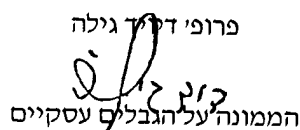 פרופ' דיויד גילה
הממונה על הגבלים עסקיים